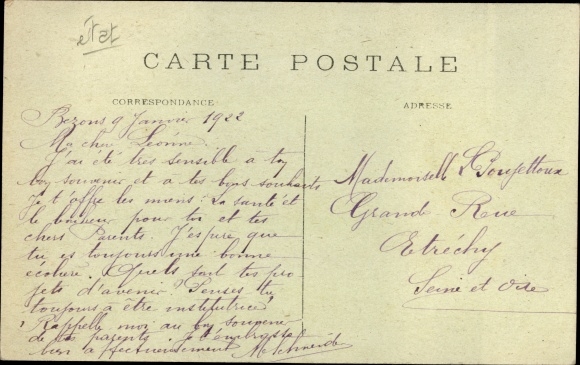 état
CARTE POSTALE
CORRESPONDANCE
ADRESSE
Bezons 9 Janvier 1922
Ma chère Léonne.
J'ai été très sensible à ton
bon souvenir et a tes bons souhaits
je t'offre les miens: La santé et
le bonheur pour toi et tes
chers Parents. J'espère que
tu es toujours une bonne
écolière. Quels sont tes pro-
jets d'avenir? Penses tu
toujours a être institutrice?
Rappelle moi au bon souvenir
de tes parents. Je t'embrasse
bien affectueusement M. Schneider
Mademoiselle L
Grande Rue
Etréchy
Seine et Oise